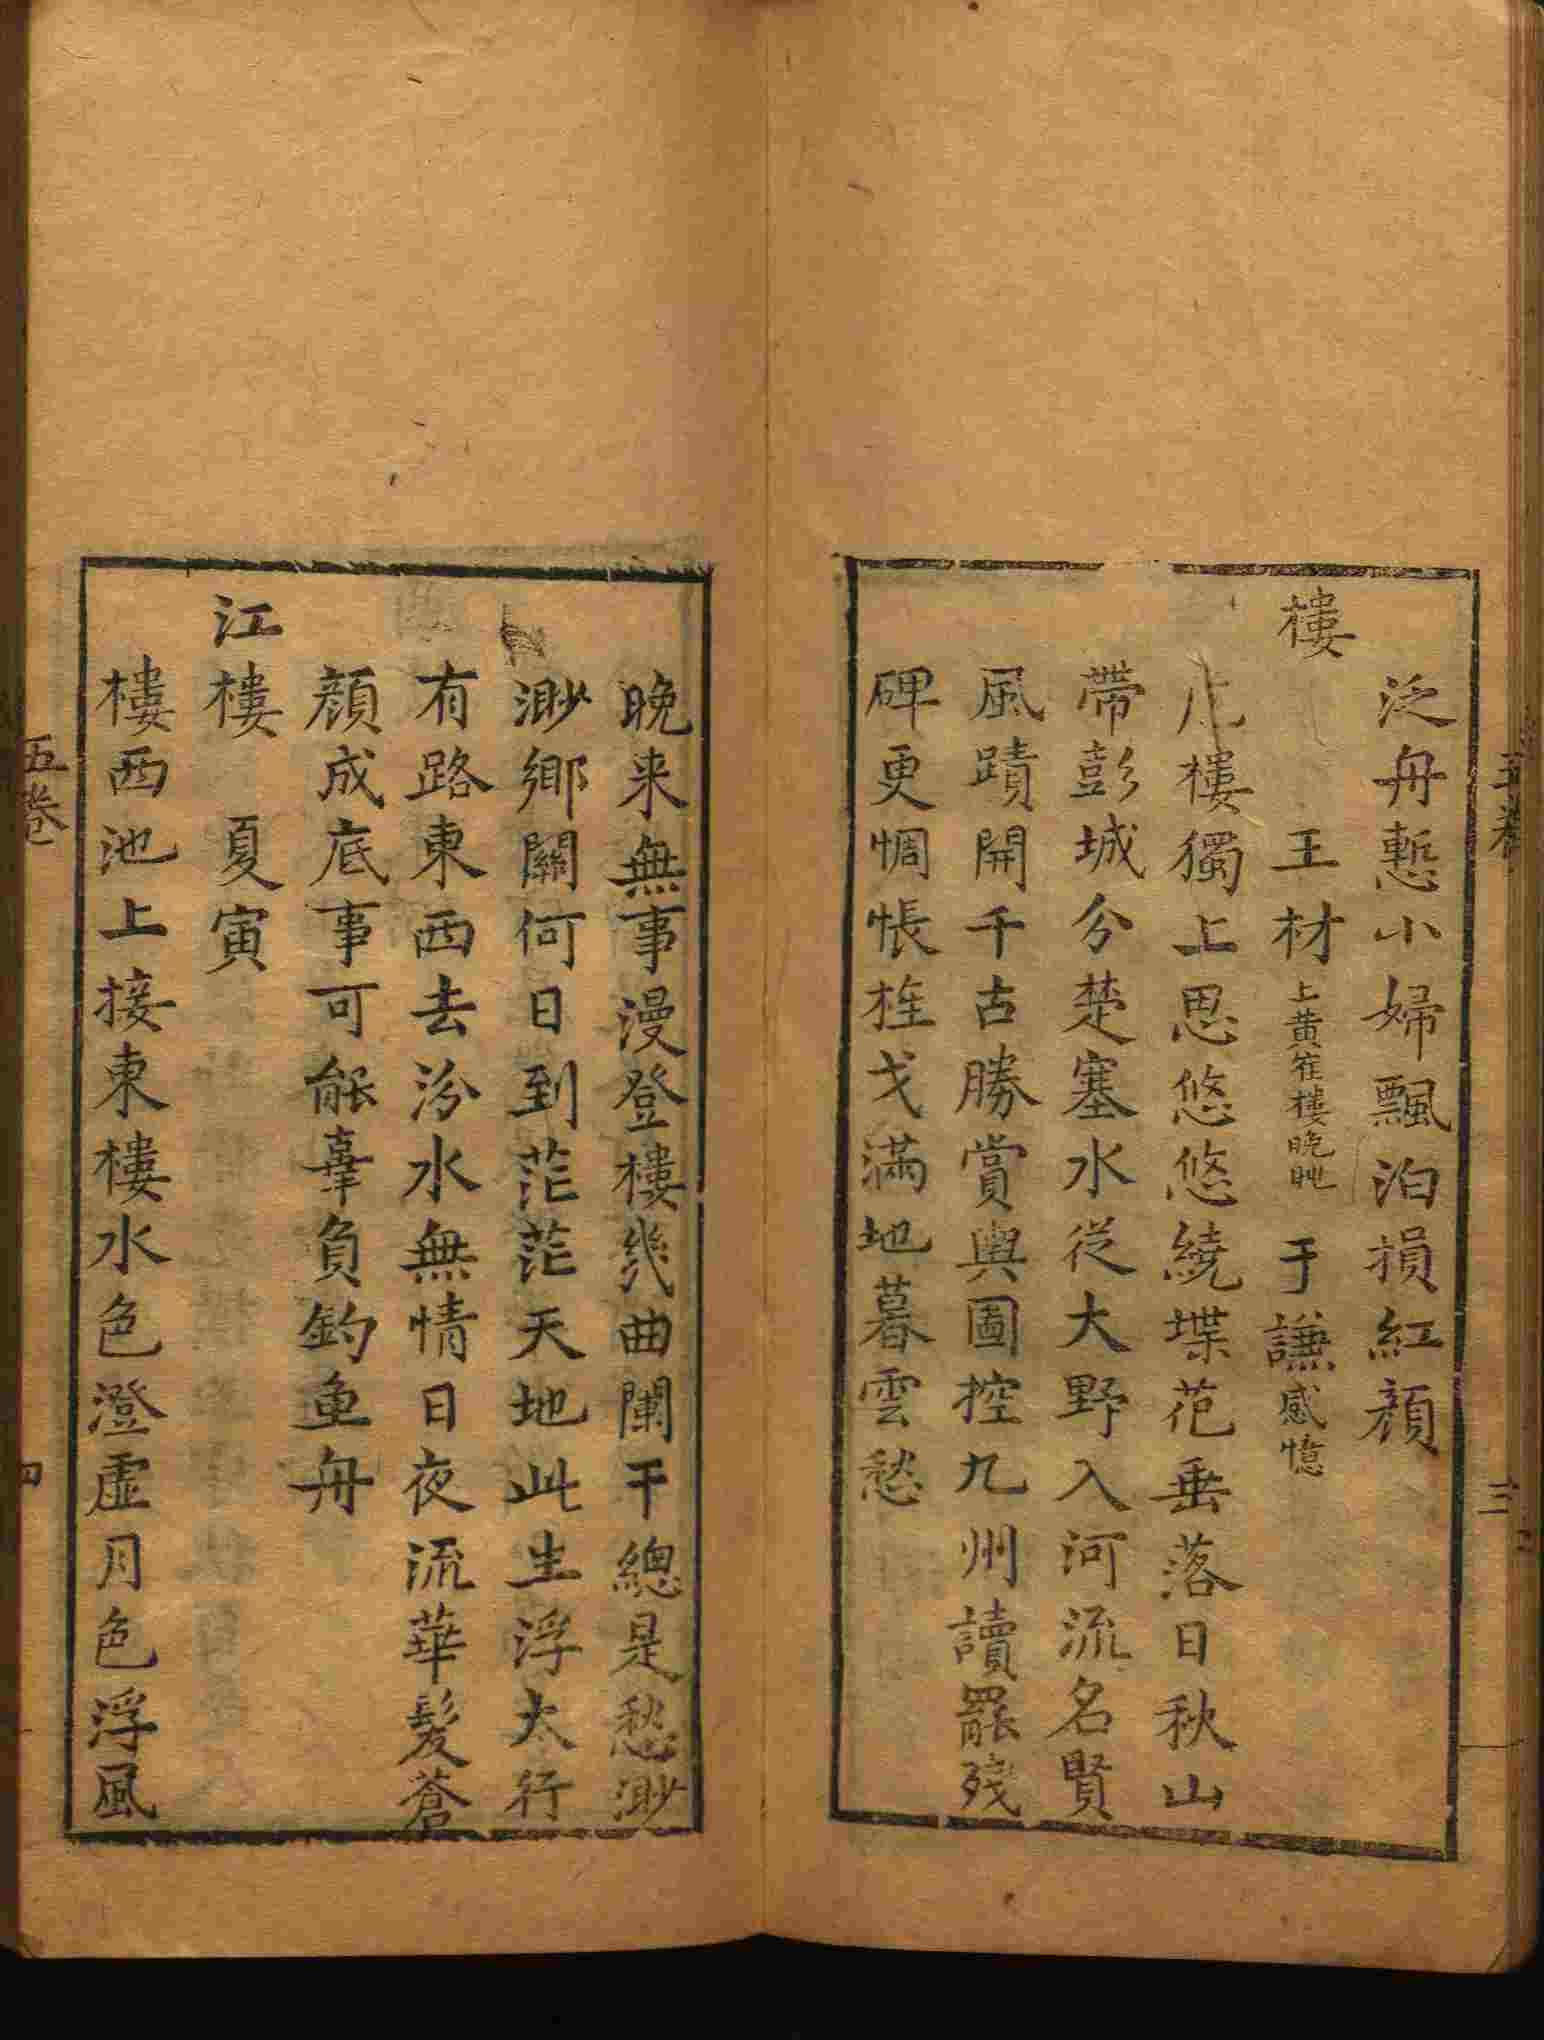 泛舟慙小婦飄泊損紅顔
樓　王材上黄隺樓晩眺　于謙感憶
樓獨上思悠悠繞堞花垂落日秋山
帶彭城分楚塞水從大野入河流名賢
風蹟開千古勝賞輿圖控九州讀罷殘
碑更惆悵旌戈滿地暮雲愁
三
晩来無事漫登樓幾曲闌干總是愁渺
渺鄉關何日到茫茫天地此生浮太行
有路東西去汾水無情日夜流華髮蒼
顔成底事可能辜負釣魚舟
江樓　夏寅
樓西池上接東樓水色澄虛月色浮風
五卷
四